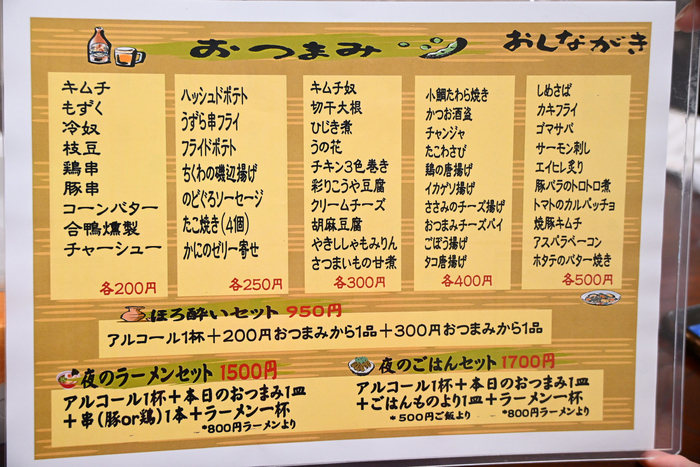 おつまみ
おしながき
キムチ
もずく
冷奴
枝豆
鶏串
豚串
コーンバター
合鴨燻製
チャーシュー
各200円
ハッシュドポテト
うずら串フライ
フライドポテト
ちくわの磯辺揚げ
のどぐろソーセージ
たこ焼き(4個)
かにのゼリー寄せ
各250円
キムチ奴
切干大根
ひじき煮
うの花
チキン3色巻き
彩りこうや豆腐
クリームチーズ
胡麻豆腐
やきししゃもみりん
さつまいもの甘煮
各300円
小鯛たわら焼き
かつお酒盗
チャンジャ
たこわさび
鶏の唐揚げ
イカゲソ揚げ
ささみのチーズ揚げ
おつまみチーズパイ
ごぼう揚げ
タコ唐揚げ
各400円
しめさば
カキフライ
ゴマサバ
サーモン刺し
エイヒレ炙り
豚バラのトロトロ煮
トマトのカルパッチョ
焼豚キムチ
アスパラベーコン
ホタテのバター焼き
各500円
ほろ酔いセット 950円
アルコール1杯+200円おつまみから1品+300円おつまみから1品
夜のラーメンセット 1500円
アルコール1杯+本日のおつまみ1皿
+串(豚or鶏)1本+ラーメン一杯
*800円ラーメンより
夜のごはんセット 1700円
アルコール1杯+本日のおつまみ1皿
+ごはんものより1皿+ラーメン一杯
*500円ご飯より *800円ラーメンより